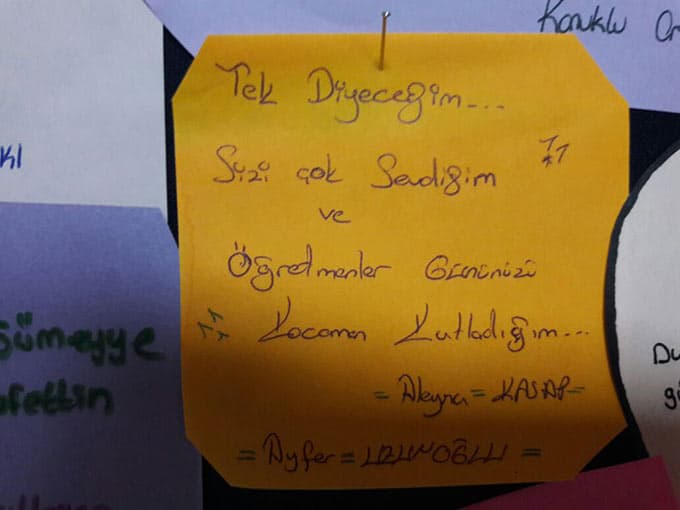 Konuklu
Tek Diyeceğim...
Sizi çok Sevdiğim
ve
Öğretmenler Gününüzü
Kocaman Kutladığım...
= Aleyna = KASAP =
= Ayfer = UZUNOĞLU =
KI
Sümeyye
afettin
Du